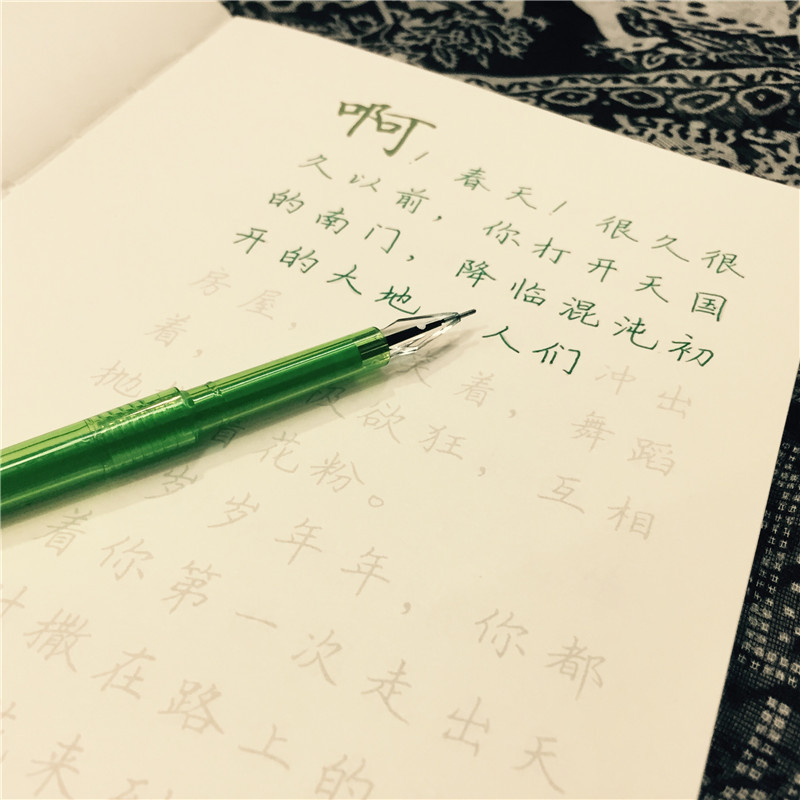 啊！春天！很久很
久以前，你打开天国
的南门，降临混沌初
开的大地 人们 冲出
房屋， 笑着，舞蹈
着， 极欲狂，互相
抛 着花粉。
岁岁年年，你都
着你第一次走出天
撒在路上的
来到